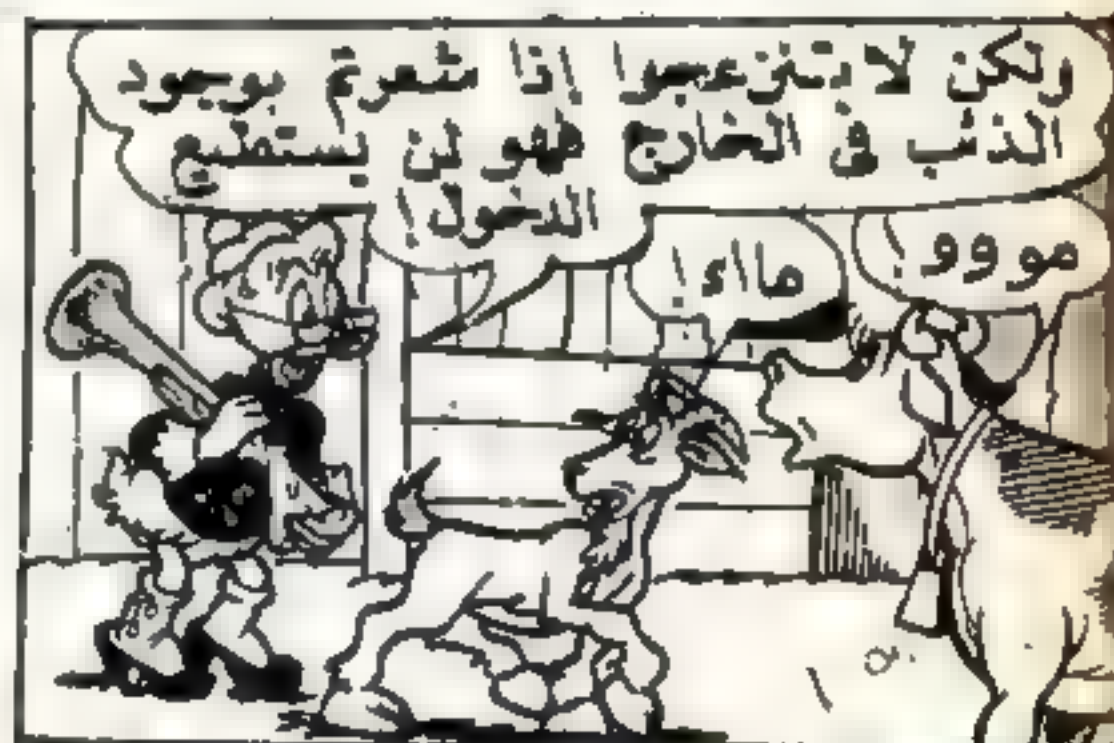 ولكن لا تنزعجوا إذا شعرتم بوجود
الذئب فى الخارج فهو لن يستطيع
الدخول !
موووو !
مااء !